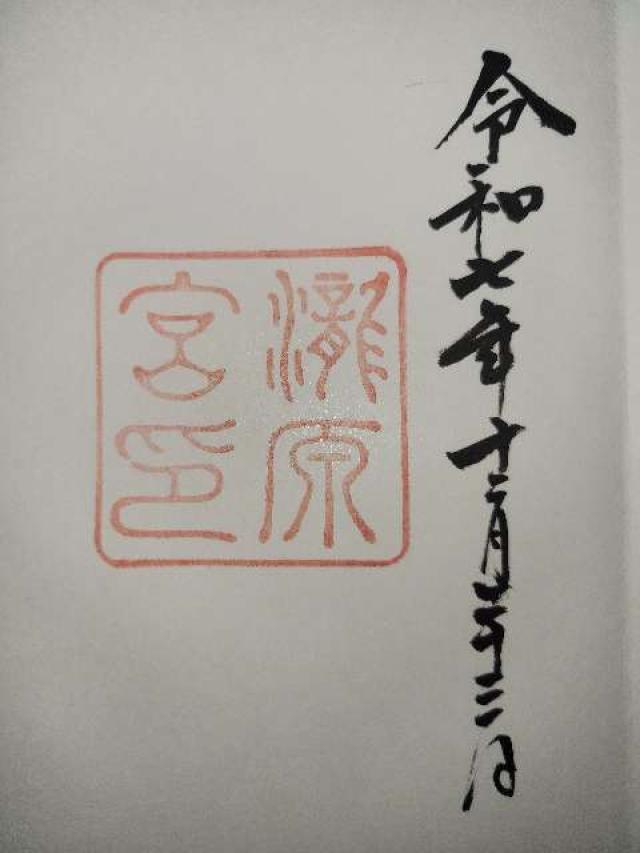 令和七年十二月二十二日
瀧原
宮印